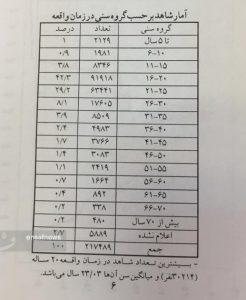 آمار شاهد بر حسب گروه سنی در زمان واقعه
گروه سنی تعداد درصد
تا ۵ سال ۲۱۲۹ ۱
۶-۱۰ ۱۹۸۱ ۰/۹
۱۱-۱۵ ۸۳۴۶ ۳/۸
۱۶-۲۰ ۹۱۹۱۸ ۴۲/۳
۲۱-۲۵ ۶۳۴۴۱ ۲۹/۲
۲۶-۳۰ ۱۷۶۰۵ ۸/۱
۳۱-۳۵ ۸۵۰۹ ۳/۹
۳۶-۴۰ ۴۹۸۳ ۲/۴
۴۱-۴۵ ۳۷۶۶ ۱/۷
۴۶-۵۰ ۳۰۸۳ ۱/۴
۵۱-۵۵ ۲۴۱۹ ۱/۱
۵۶-۶۰ ۱۶۶۴ ۰/۷
۶۱-۶۵ ۸۹۲ ۰/۴
۶۶-۷۰ ۰/۲
بیش از ۷۰ سال ۴۸۰ ۰/۲
اعلام نشده ۵۸۸۹ ۲/۷
جمع ۲۱۷۴۸۹ ۱۰۰
- بیشترین تعداد شاهد در زمان واقعه ۲۰ ساله
(۳۰۲۱۴نفر) و میانگین سن آن‌ها ۲۳/۰۳ سال می‌باشد.
۶
ensafnews